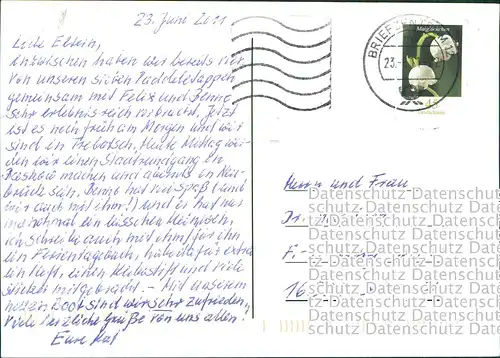 23. Juni 2011
Liebe Eltern,
inzwischen haben wir bereits vier
von unseren sieben Paddeletappen
gemeinsam mit Felix und Benno
sehr erlebnisreich verbracht. Jetzt
ist es noch früh am Morgen und wir
sind in Trebatsch. Heute Mittag wer-
den wir einen Stadtrundgang in
Beeskow machen und abends in Neu-
brück sein. Benno hat viel Spaß (und
wir auch mit ihm!) und er hat nur
manchmal ein bisschen Heimweh.
ich schreibe auch mit ihm/für ihn
ein Ferientagebuch, habe dafür extra
ein Heft, einen Klebestift und viele
mitgebracht. – Mit unserem
sind wir sehr zufrieden,
viele herzliche Grüße von uns allen!
Eure
BRIEFZENTRUM
23.
Maiglöckchen
45
Deutschland
Herrn und Frau
Datenschutz Datenschutz
Dr.
Datenschutz Datenschutz
Fi
Datenschutz Datenschutz
16
Datenschutz Datenschutz
schutz Datenschutz